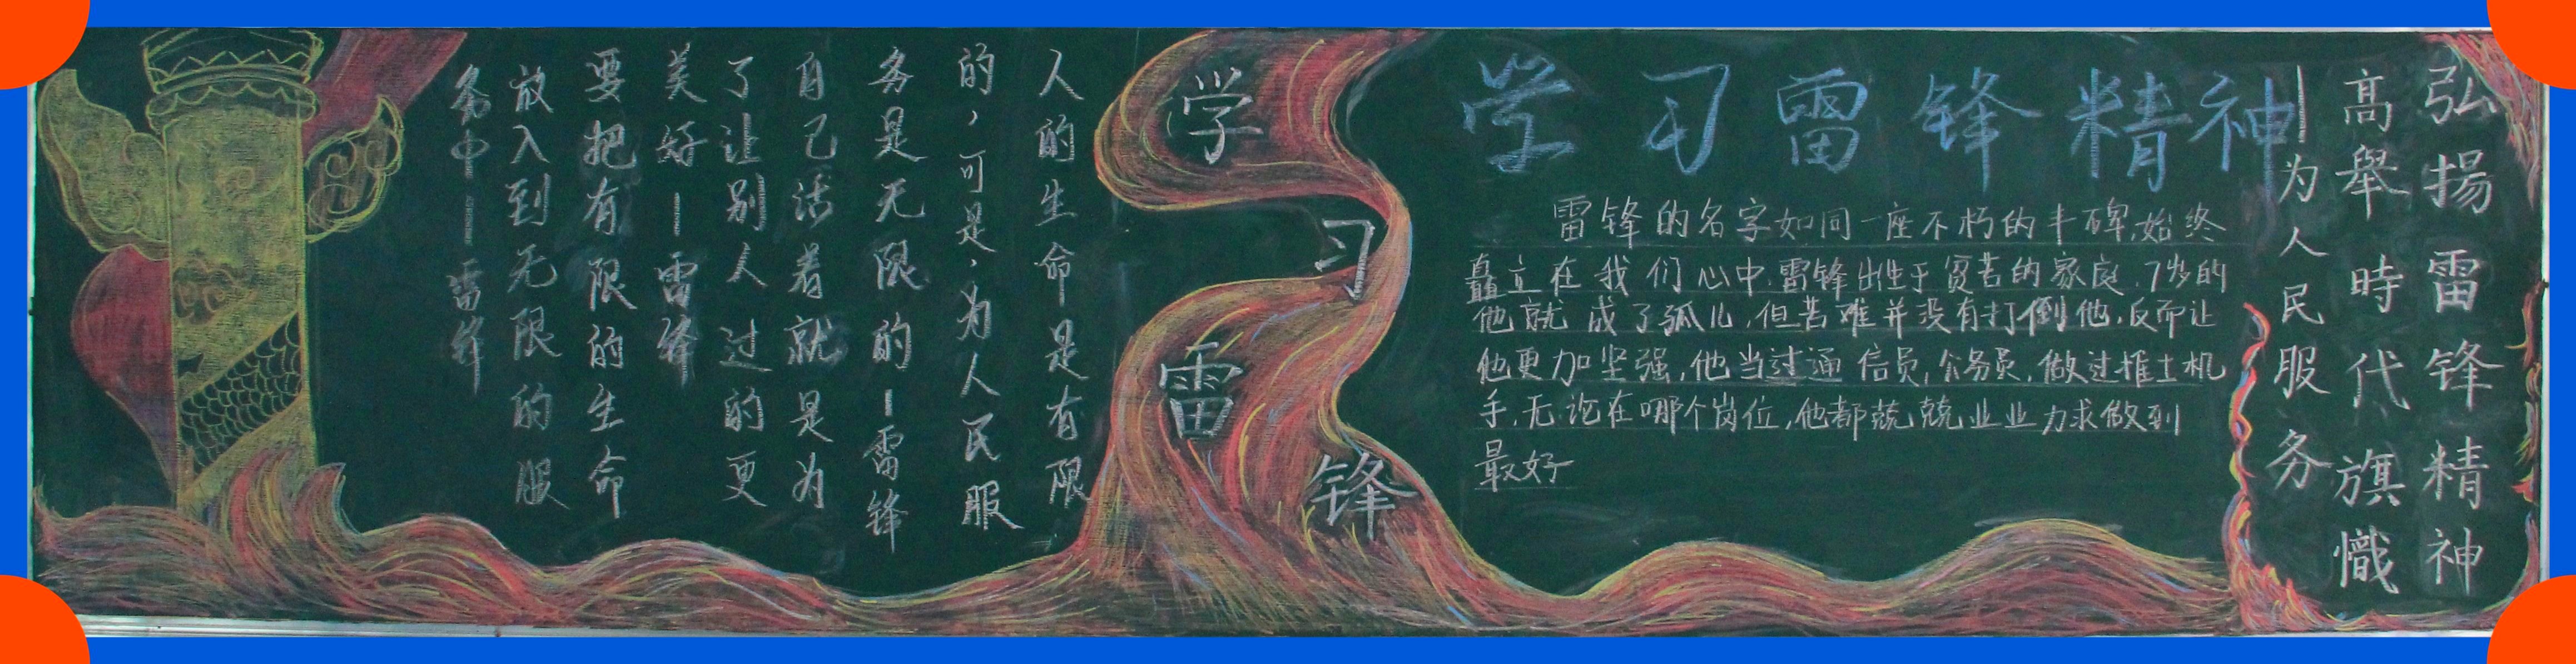 弘揚雷锋精神
高舉時代旗幟
—为人民服务
学习雷锋精神
雷锋的名字如同一座不朽的丰碑,始终
矗立在我们心中.雷锋出生于贫苦的家庭.7岁的
他就成了孤儿,但苦难并没有打倒他,反而让
他更加坚强,他当过通信员,公务员,做过推土机
手,无论在哪个岗位,他都兢兢业业力求做到
最好
学习雷锋
人的生命是有限
的,可是,为人民服
务是无限的—雷锋
自己活着就是为
了让别人过的更
美好—雷锋
要把有限的生命
放入到无限的服
务中——雷锋